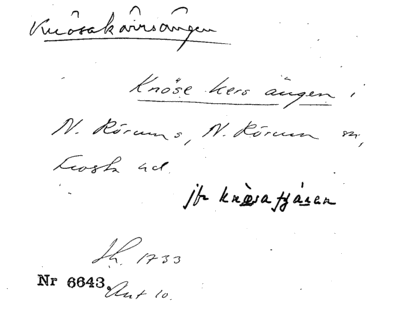 Knösakärrsängen
Knöse kers ängen i
N. Rörums, N. Rörum sn,
Frosta hd.
jfr knøsa fjáran
Sk. 1733
Nr 6643. Akt 10.